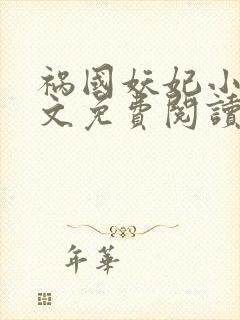 祸國妖妃小
文免費閱讀
年華